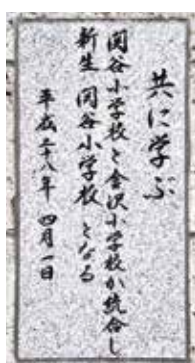 共に学ぶ
関谷小学校と金沢小学校が統合し
新生 関谷小学校 となる
平成二十八年 四月一日